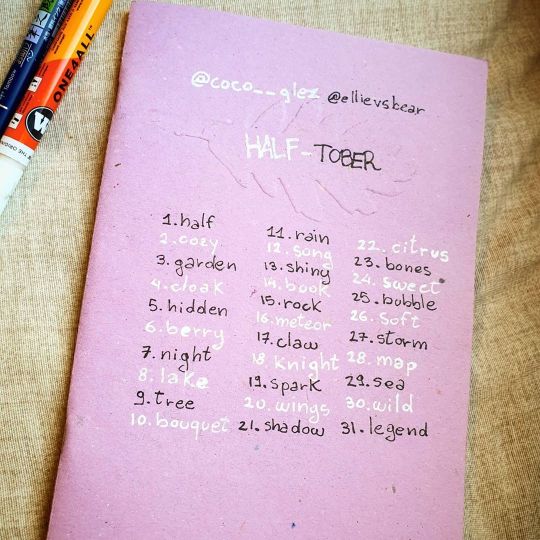 @coco__glez @ellievsbear
HALF-TOBER
1. half
2. cozy
3. garden
4. cloak
5. hidden
6. berry
7. night
8. lake
9. tree
10. bouquet
11. rain
12. song
13. shiny
14. book
15. rock
16. meteor
17. claw
18. knight
19. spark
20. wings
21. shadow
22. citrus
23. bones
24. sweet
25. bubble
26. soft
27. storm
28. map
29. sea
30. wild
31. legend
ONE4ALL